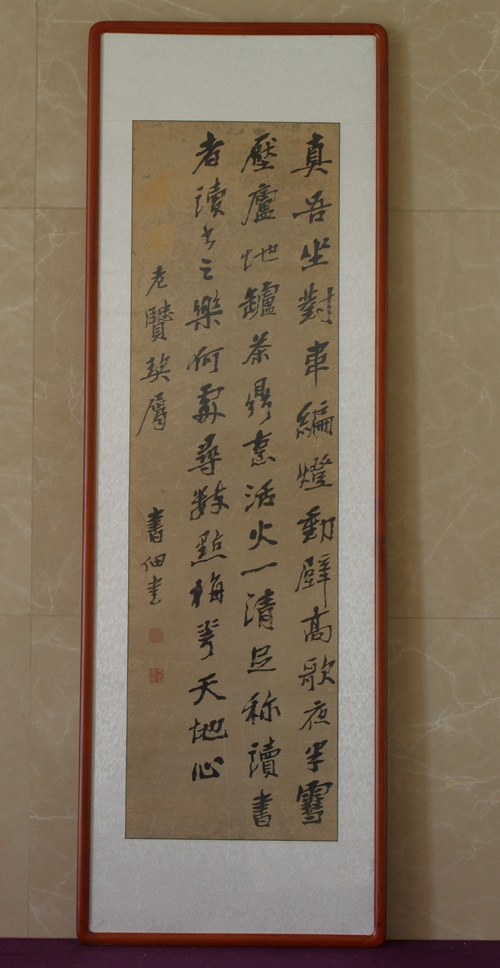 真吾坐對韋編燈動壁高歌夜半雪
壓廬地罏茶鼎烹活火一清足称讀書
者讀書之樂何處尋數點梅花天地心
老賢契屬 書佃書